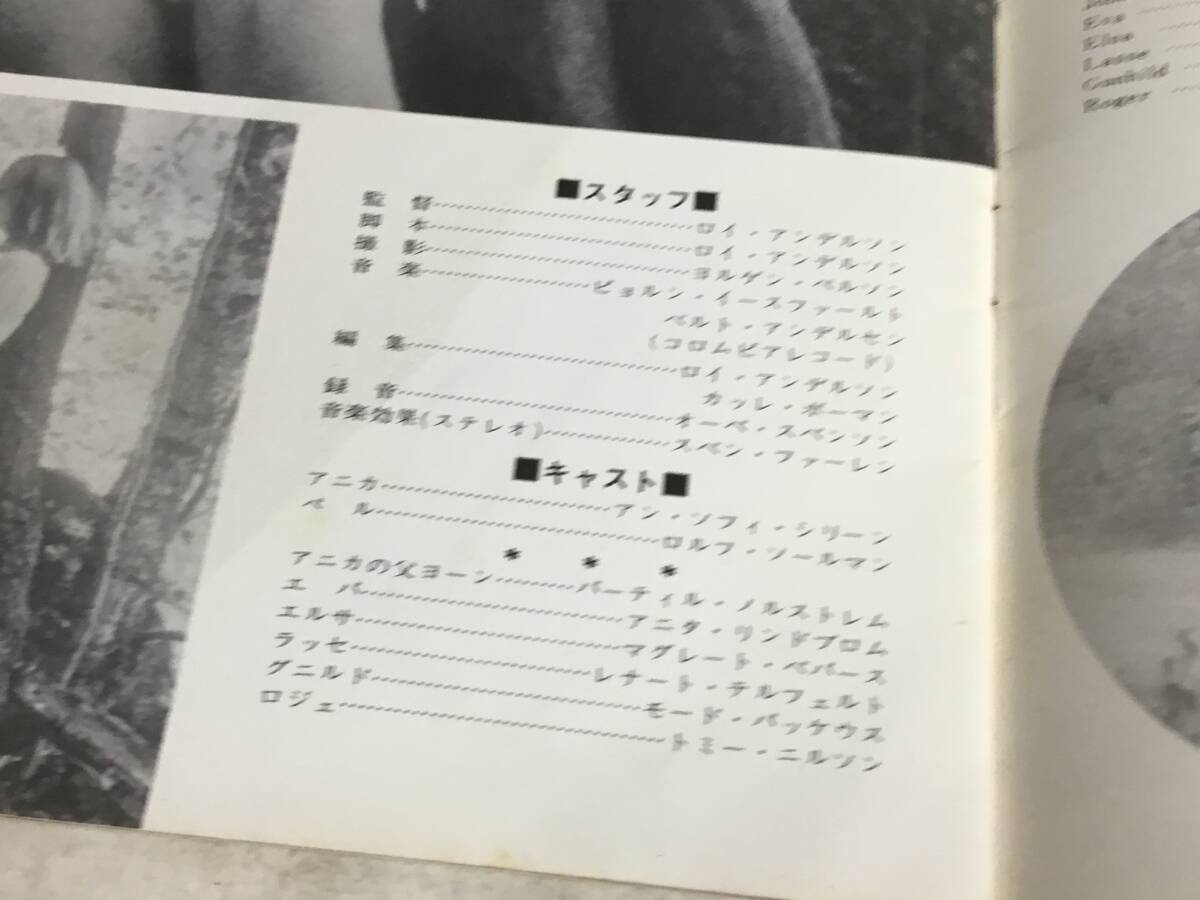 ■スタッフ■
監督……ロイ・アンデルソン
脚本……ロイ・アンデルソン
撮影……ヨルゲン・ペルソン
音楽……ビョルン・イースファールト
ベルト・アンデルセン
(コロムビアレコード)
編集……ロイ・アンデルソン
カッレ・ボーマン
録音……オーベ・スベンソン
音楽効果(ステレオ)……スベン・ファーレン
■キャスト■
アニカ……アン・ソフィ・シリーン
ペル……ロルフ・ソールマン
* * *
アニカの父ヨーン……バーティル・ノルストレム
エバ……アニタ・リンドブロム
エルサ……マグレート・ベバース
ラッセ……レナート・テルフェルト
グニルド……モード・バッケウス
ロジェ……トミー・ニルソン
Eva
Elsa
Lasse
Gunhild
Roger